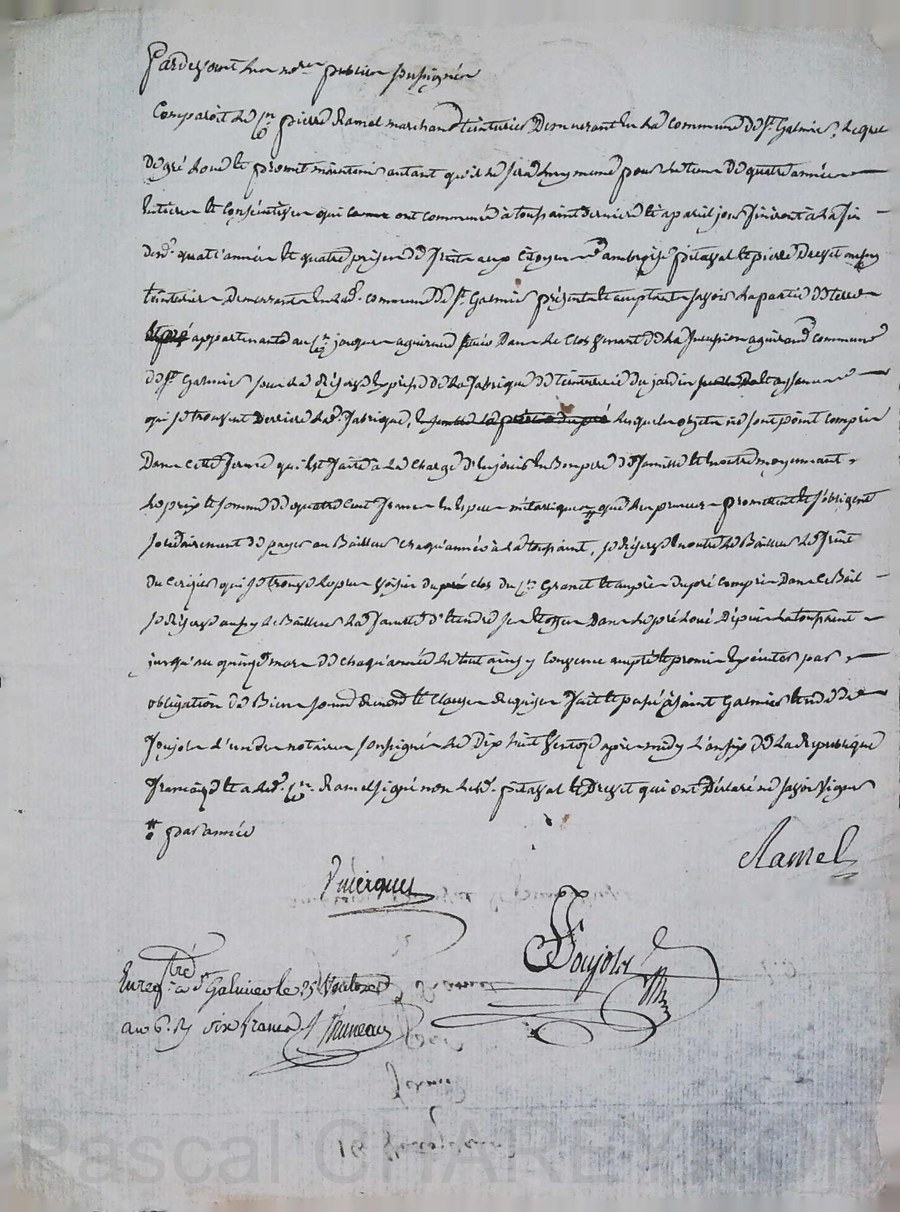 Pardevant les no.res publics soussignés
Comparoit le c.en pierre Ramel marchand teinturier Demeurant en la commune de S.t Galmier, lequel
de gré loue et promet maintenir autant qu'il le sera luy meme pour le tems de quatre années
entieres et consécutives qui ont commencé a toussaint derniere et a pareil jour finiront a la fin
desd. quatre années et quatre prises de fruits aux citoyens ambroise pitaval et pierre Devet
teinturiers Demeurants en lad. commune de S.t Galmier présents et acceptants savoir la partie de terre
appartenante au c.en jacques aguiraud située Dans le clos venant de la succession aguiraud commune
de S.t Galmier sous la réserve expresse de la fabrique de teinturerie du jardin
qui se trouvent Derriere lad. fabrique, lesquels objets ne sont point compris
Dans cette ferme qui est faite a la charge d'en jouir en bon pere de famille et moyennant
le prix et somme de quatre cent francs en especes métalique # que les preneurs promettent et s'obligent
solidairement de payer au Bailleur chaqu'année a la toussaint, se réserve en outre le Bailleur le fruit
du cerisier qui se trouve le plus voisin du clos du c.en Granet et auprès du pré compris Dans ce Bail
se réserve aussy le Bailleur la faculté d'étendre Dans le pré loué Depuis la toussaint
jusqu'au quinze mars de chaqu'année le tout ainsy convenu accepté et promis exécuter par
obligation de Biens soumis renoncé et clauses requises fait et passé a saint Galmier etude de
Foujols l'un des notaires soussignés le Dix huit ventose après midy l'an six de la Republique
française et a led. c.en Ramel signé non lesd. pitaval et Devet qui ont Déclaré ne savoir signer
# par année
Ramel
Foujols
Enreg.tré a S.t Galmier le 25 Ventose
an 6. R. six francs
Pascal CHAREYRON